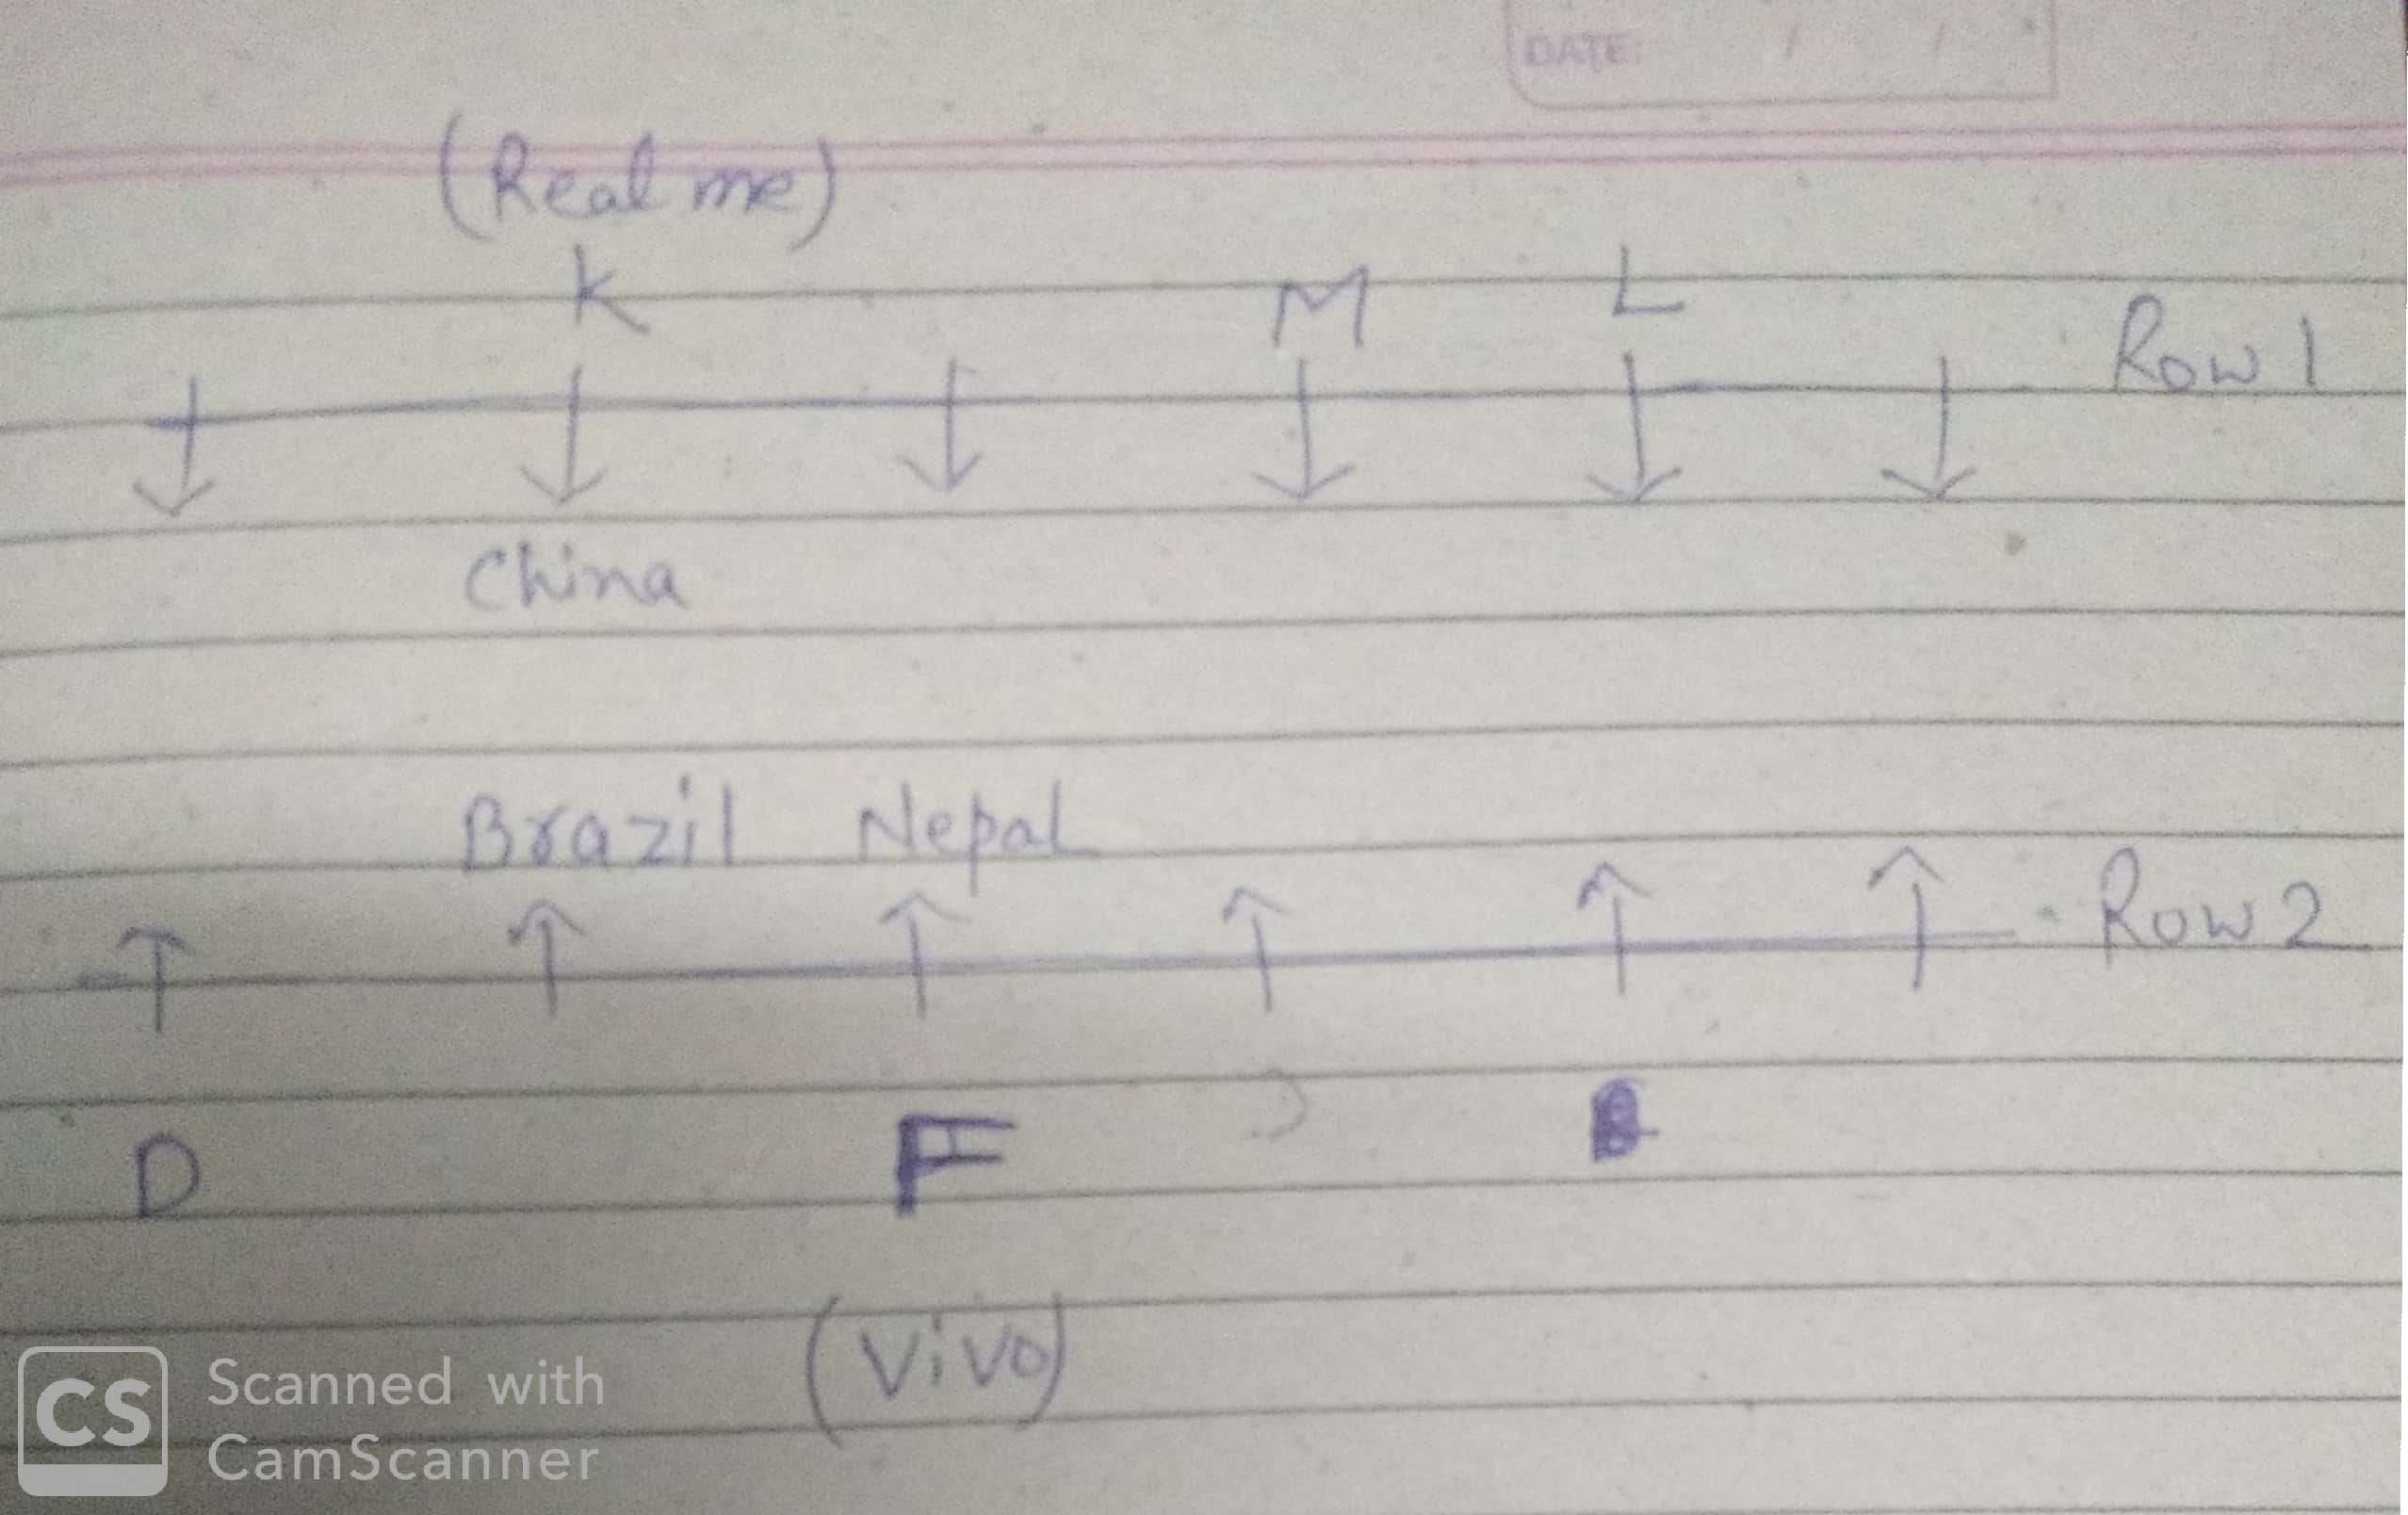 DATE: / /
(Realme)
K M L
Row 1
China
Brazil Nepal
Row 2
D F B
(Vivo)
CS Scanned with
CamScanner